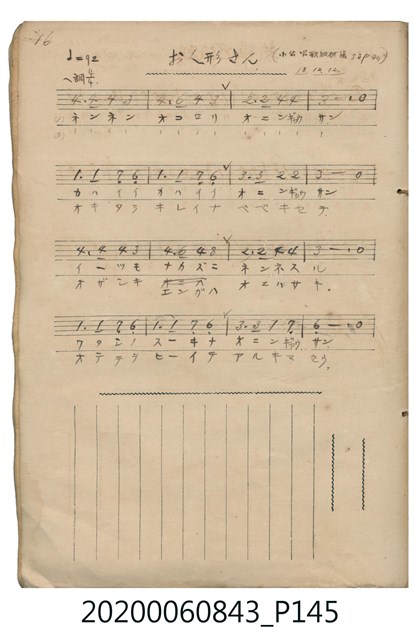 16
♩=92
お人形さん
ヘ調
4. 4 4 3 4. 6 4 3 2. 2 4 4 3 — . 0
ネンネン オコロリ オニンギョウ サン
1. 1 7 6 1. 1 7 6 3. 3 2 2 3 — . 0
カハイイ カハイイ オニンギョウ サン
オキタラ キレイナ ベベキセテ
4. 4 4 3 4. 6 4 3 2. 2 4 4 3 — . 0
イーツモ ナカズニ ネンネスル
オザシキ オニハ
エンガハ オニルサト.
1. 1 7 6 1. 1 7 6 3. 3 1 7 6 — 0
ワタシノ スーキナ オニンギョウ サン
オテテヲ ヒーイテ アルキマ セウ
20200060843_P145